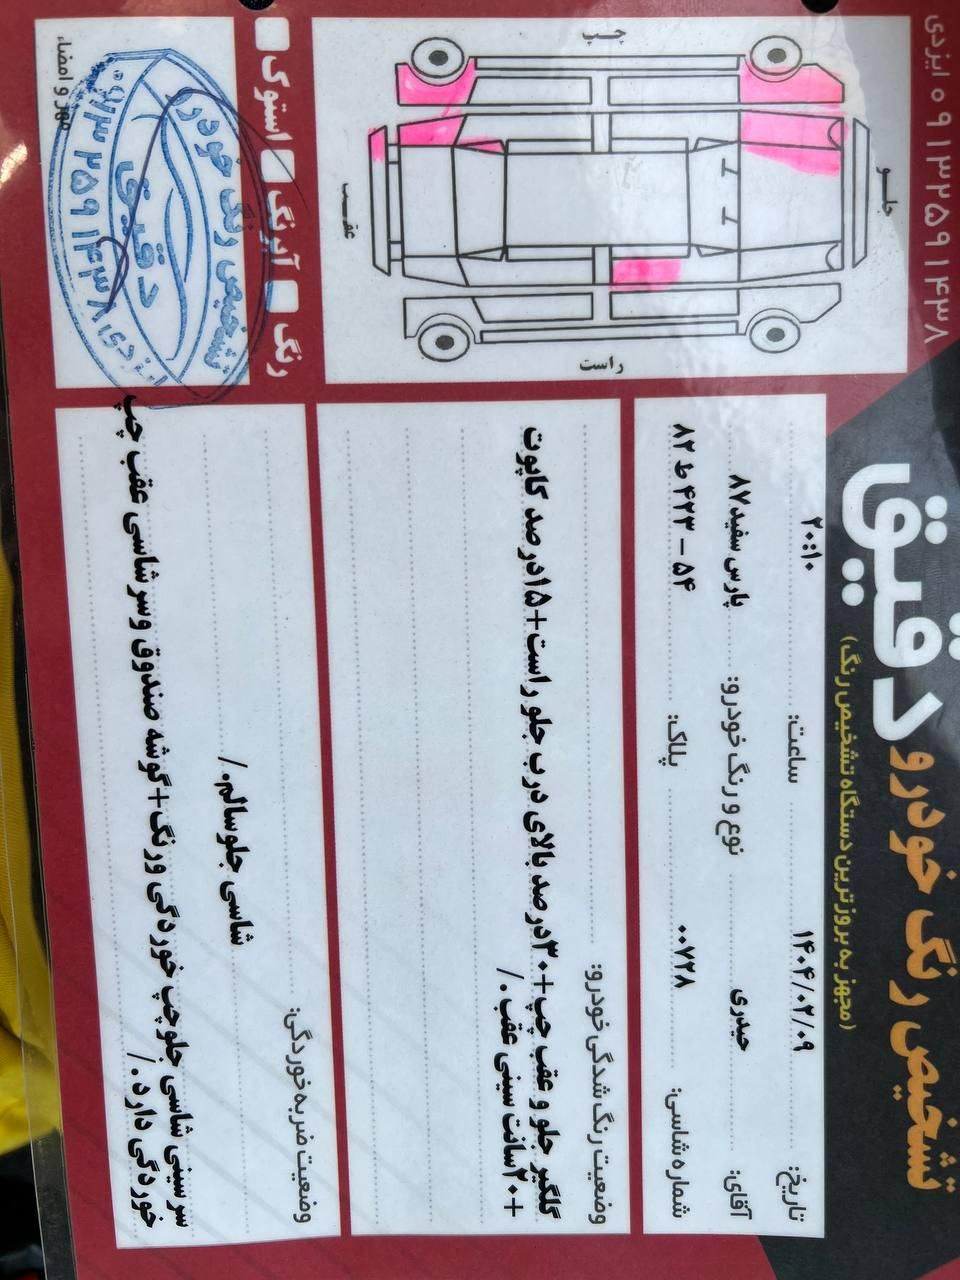 تشخیص رنگ خودرو دقیق
(مجهز به بروزترین دستگاه تشخیص رنگ)
۰۹۱۳۲۵۹۱۴۳۸ ایزدی
تاریخ: ۱۴۰۴/۰۲/۰۹ ساعت: ۲۰:۱۰
آقای: حیدری نوع و رنگ خودرو: پارس سفید ۸۷
شماره شاسی: ۰۰۷۲۸ پلاک: ۵۴ - ۴۲۳ ط ۸۲
وضعیت رنگ شدگی خودرو:
گلگیر جلو و عقب چپ+۳۰درصد بالای درب جلو راست+۱۵درصد کاپوت
+۲۰سانت سینی عقب ./
وضعیت ضربه خوردگی:
شاسی جلو سالم ./
سر سینی شاسی جلو چپ خوردگی ورنگ+گوشه صندوق وسر شاسی عقب چپ
خوردگی دارد ./
چپ
جلو
عقب
راست
رنگ
آبرنگ
استوک
مهر و امضاء
تشخیص رنگ خودرو
دقیق
۰۹۱۳۲۵۹۱۴۳۸
ایزدی